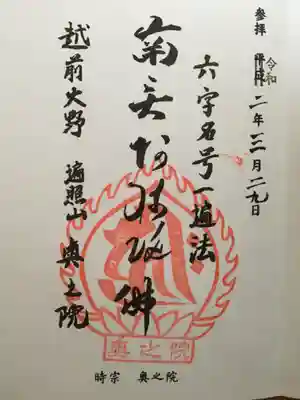 参拝 平成 令和 二年 三月 二九日
六字名号一遍法
南无阿弥陀仏
越前大野 遍照山 奥之院
奥之院
時宗 奥之院